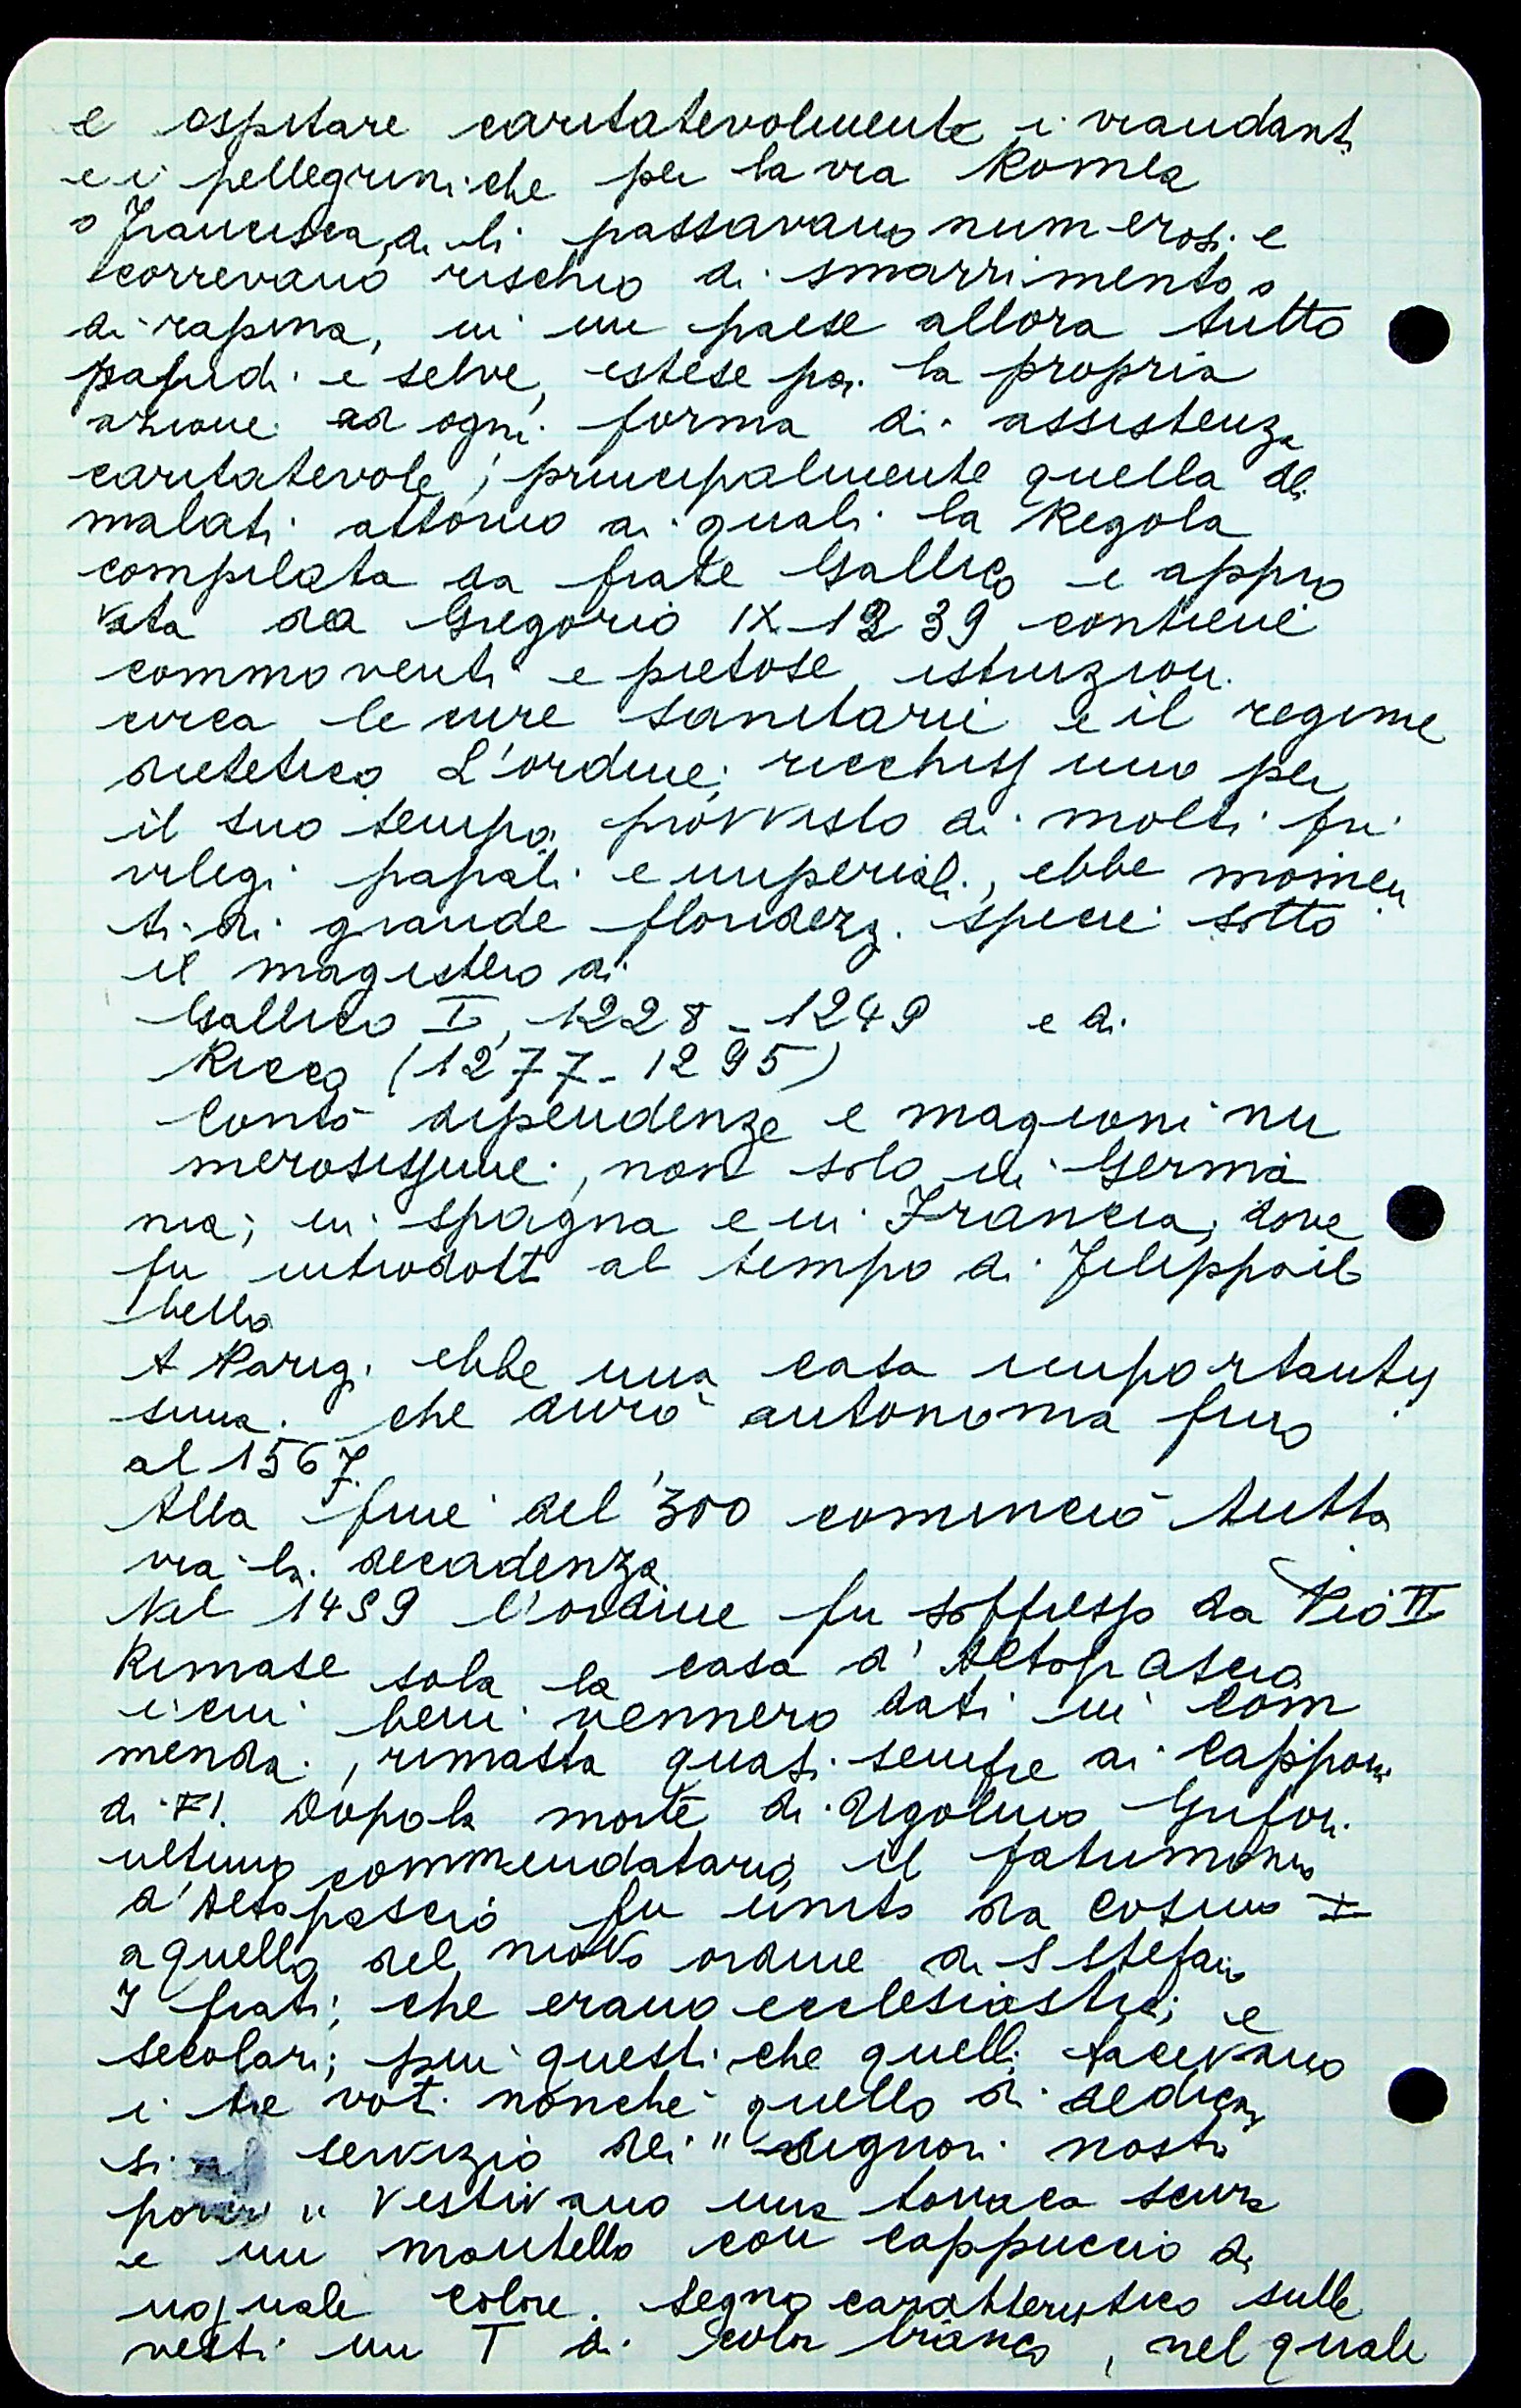 e ospitare caritatevolmente i viandanti
e i pellegrini che per la via Romea
o Francesca, di lì passavano numerosi e
correvano rischio di smarrimento o
di rapina, in un paese allora tutto
paludi e selve, estese poi la propria
azione ad ogni forma di assistenza
caritatevole, principalmente quella dei
malati attorno ai quali la Regola
compilata da frate Gallico e appro
vata da Gregorio IX 1239 contiene
commoventi e pietose istruzioni
circa le cure sanitarie e il regime
dietetico L'ordine, ricchissimo per
il suo tempo, provvisto di molti pri
vilegi papali e imperiali, ebbe momen
ti di grande floridezz. specie sotto
il magistero di
Gallico I, 1228-1249 e di
Ricco (1277-1295)
Contò dipendenze e magioni nu
merosissime, non solo in Germa
nia, in Spagna e in Francia, dove
fu introdott al tempo di Filippo il
bello
A Parigi ebbe una casa importantis
sima che durò autonoma fino
al 1567.
Alla fine del '300 cominciò tutta
via la decadenza.
Nel 1459 l'ordine fu soppresso da Pio II
Rimase sola la casa d'Altopascio
i cui beni vennero dati in com
menda, rimasta quasi sempre ai Capponi
di FI. Dopo la morte di Ugolino Grifoni
ultimo commendatario, il patrimonio
d'Altopascio fu unito da Cosimo I
a quello del nuovo ordine di S Stefano
I frati, che erano ecclesiastici e
secolari, più questi che quelli facevano
i tre voti nonché quello di dedicar
si al servizio dei "signori nostri
poveri" Vestivano una tonaca scura
e un mantello con cappuccio di
uguale colore. Segno caratteristico sulle
vesti un T di color bianco, nel quale